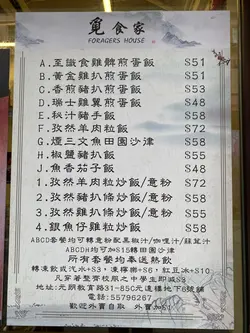 覓食家
FORAGERS HOUSE
A.至識食雞髀煎蛋飯 S51
B.黃金雞扒煎蛋飯 S51
C.香煎豬扒煎蛋飯 S53
D.瑞士雞翼煎蛋飯 S48
E.秘汁豬手飯 S58
F.孜然羊肉粒飯 S72
G.煙三文魚田園沙律 S58
H.椒鹽豬扒飯 S55
J.魚香茄子飯 S48
1.孜然羊肉粒炒飯/意粉 S72
2.孜然豬扒條炒飯/意粉 S55
3.孜然雞扒條炒飯/意粉 S55
4.銀魚仔雞粒炒飯 S58
ABCD套餐均可轉意粉配黑椒汁/咖喱汁/蒜茸汁
ABCDH均可加S15轉田園沙律
所有套餐均奉送熱飲
轉凍飲或汽水+S3,凍檸樂+S6,紅豆冰+S10
凡穿著整齊校服之中學生即減S3
地址:元朗教育路31-85C元達樓地下6號舖
電話:55796267
歡迎外賣自取 外賣加S1